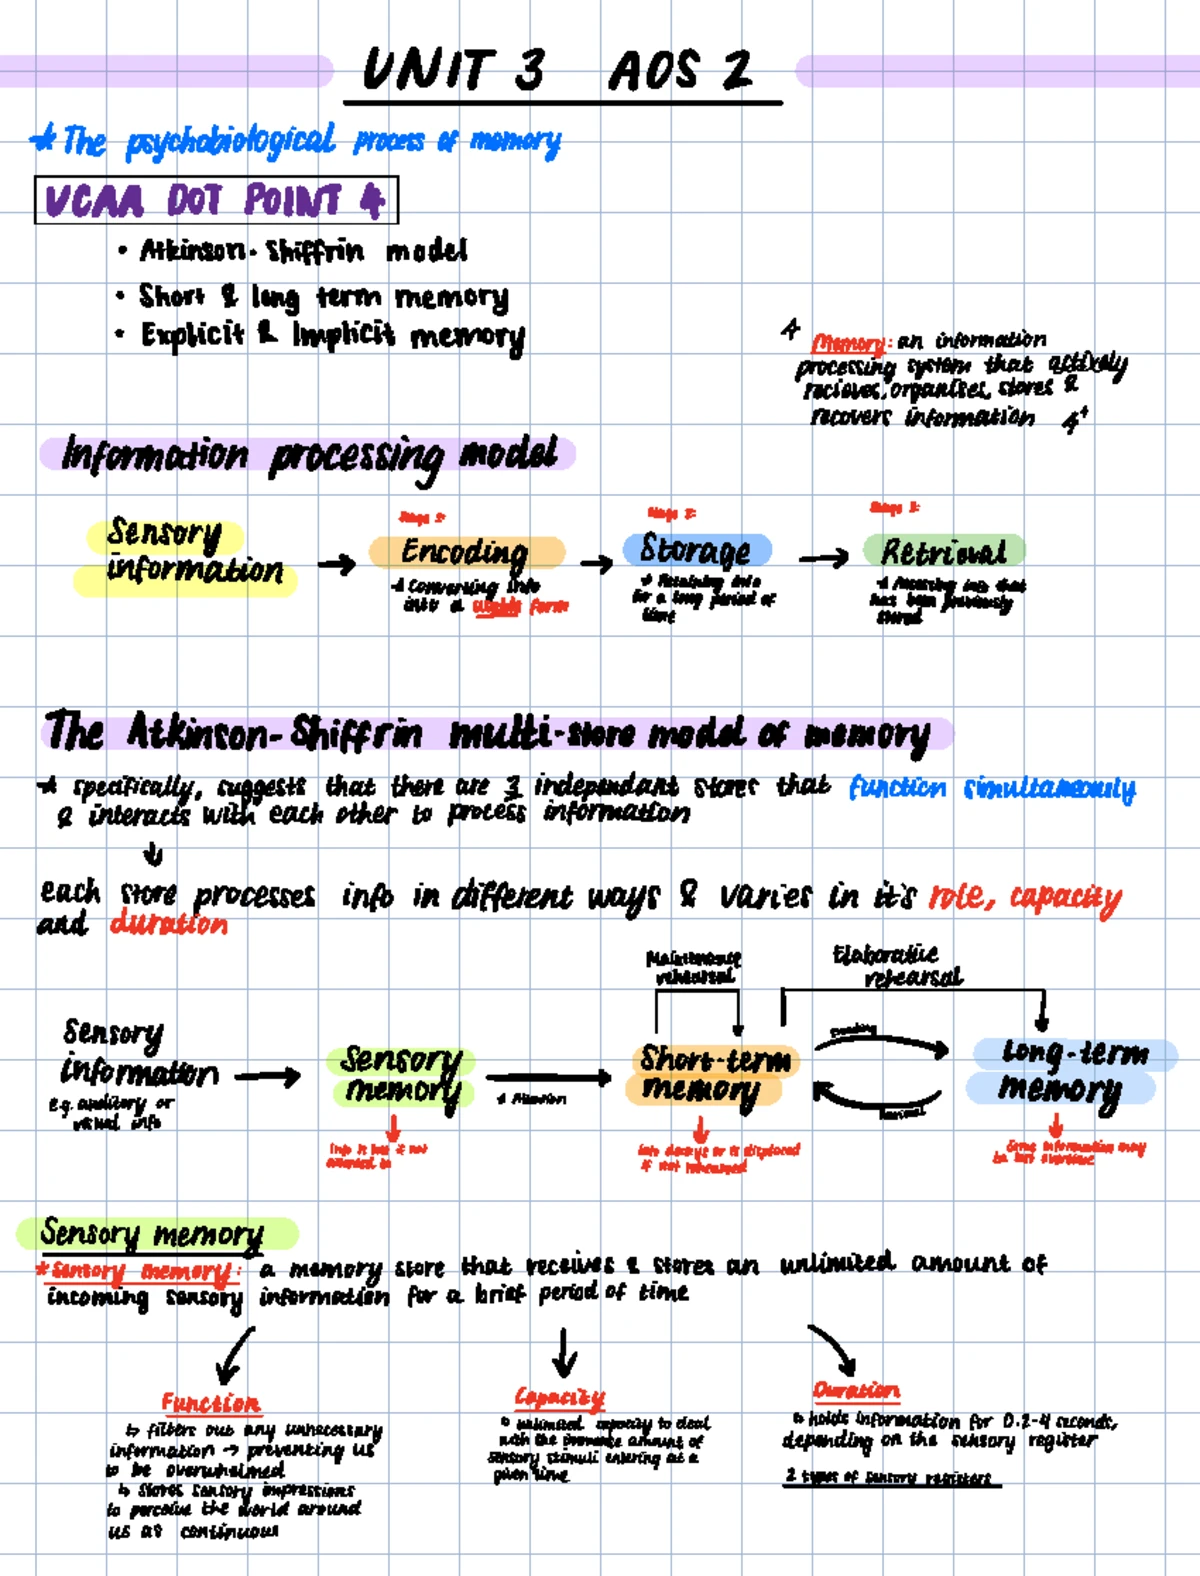 UNIT 3 AOS 2
The psychobiological process of memory
VCAA DOT POINT 4
• Atkinson-Shiffrin model
• Short & long term memory
• Explicit & Implicit memory
Memory: an information
processing system that actively
recieves, organises, stores &
recovers information
Information processing model
Sensory
information
Stage 1:
Encoding
Converting info
into a usable form
Stage 2:
Storage
Retaining info
for a long period of
time
Stage 3:
Retrieval
Accessing info that
has been previously
stored
The Atkinson-Shiffrin multi-store model of memory
specifically, suggests that there are 3 independant stores that function simultaneously
& interacts with each other to process information
each store processes info in different ways & varies in it's role, capacity
and duration
Maintenance
rehearsal
Elaborative
rehearsal
Sensory
information
e.g. auditory or
visual info
Sensory
memory
Attention
Info is lost if not
attended to
Short-term
memory
info decays or is displaced
if not rehearsed
Encoding
Retrieval
Long-term
memory
Some information may
be lost overtime
Sensory memory
*Sensory memory: a memory store that receives & stores an unlimited amount of
incoming sensory information for a brief period of time
Function
↳ filters out any unnecessary
information → preventing us
to be overwhelmed
↳ stores sensory impressions
to perceive the world around
us as continuous
Capacity
↳ unlimited capacity to deal
with the immense amount of
sensory stimuli entering at a
given time
Duration
↳ holds information for 0.2-4 seconds,
depending on the sensory register
2 types of sensory registers